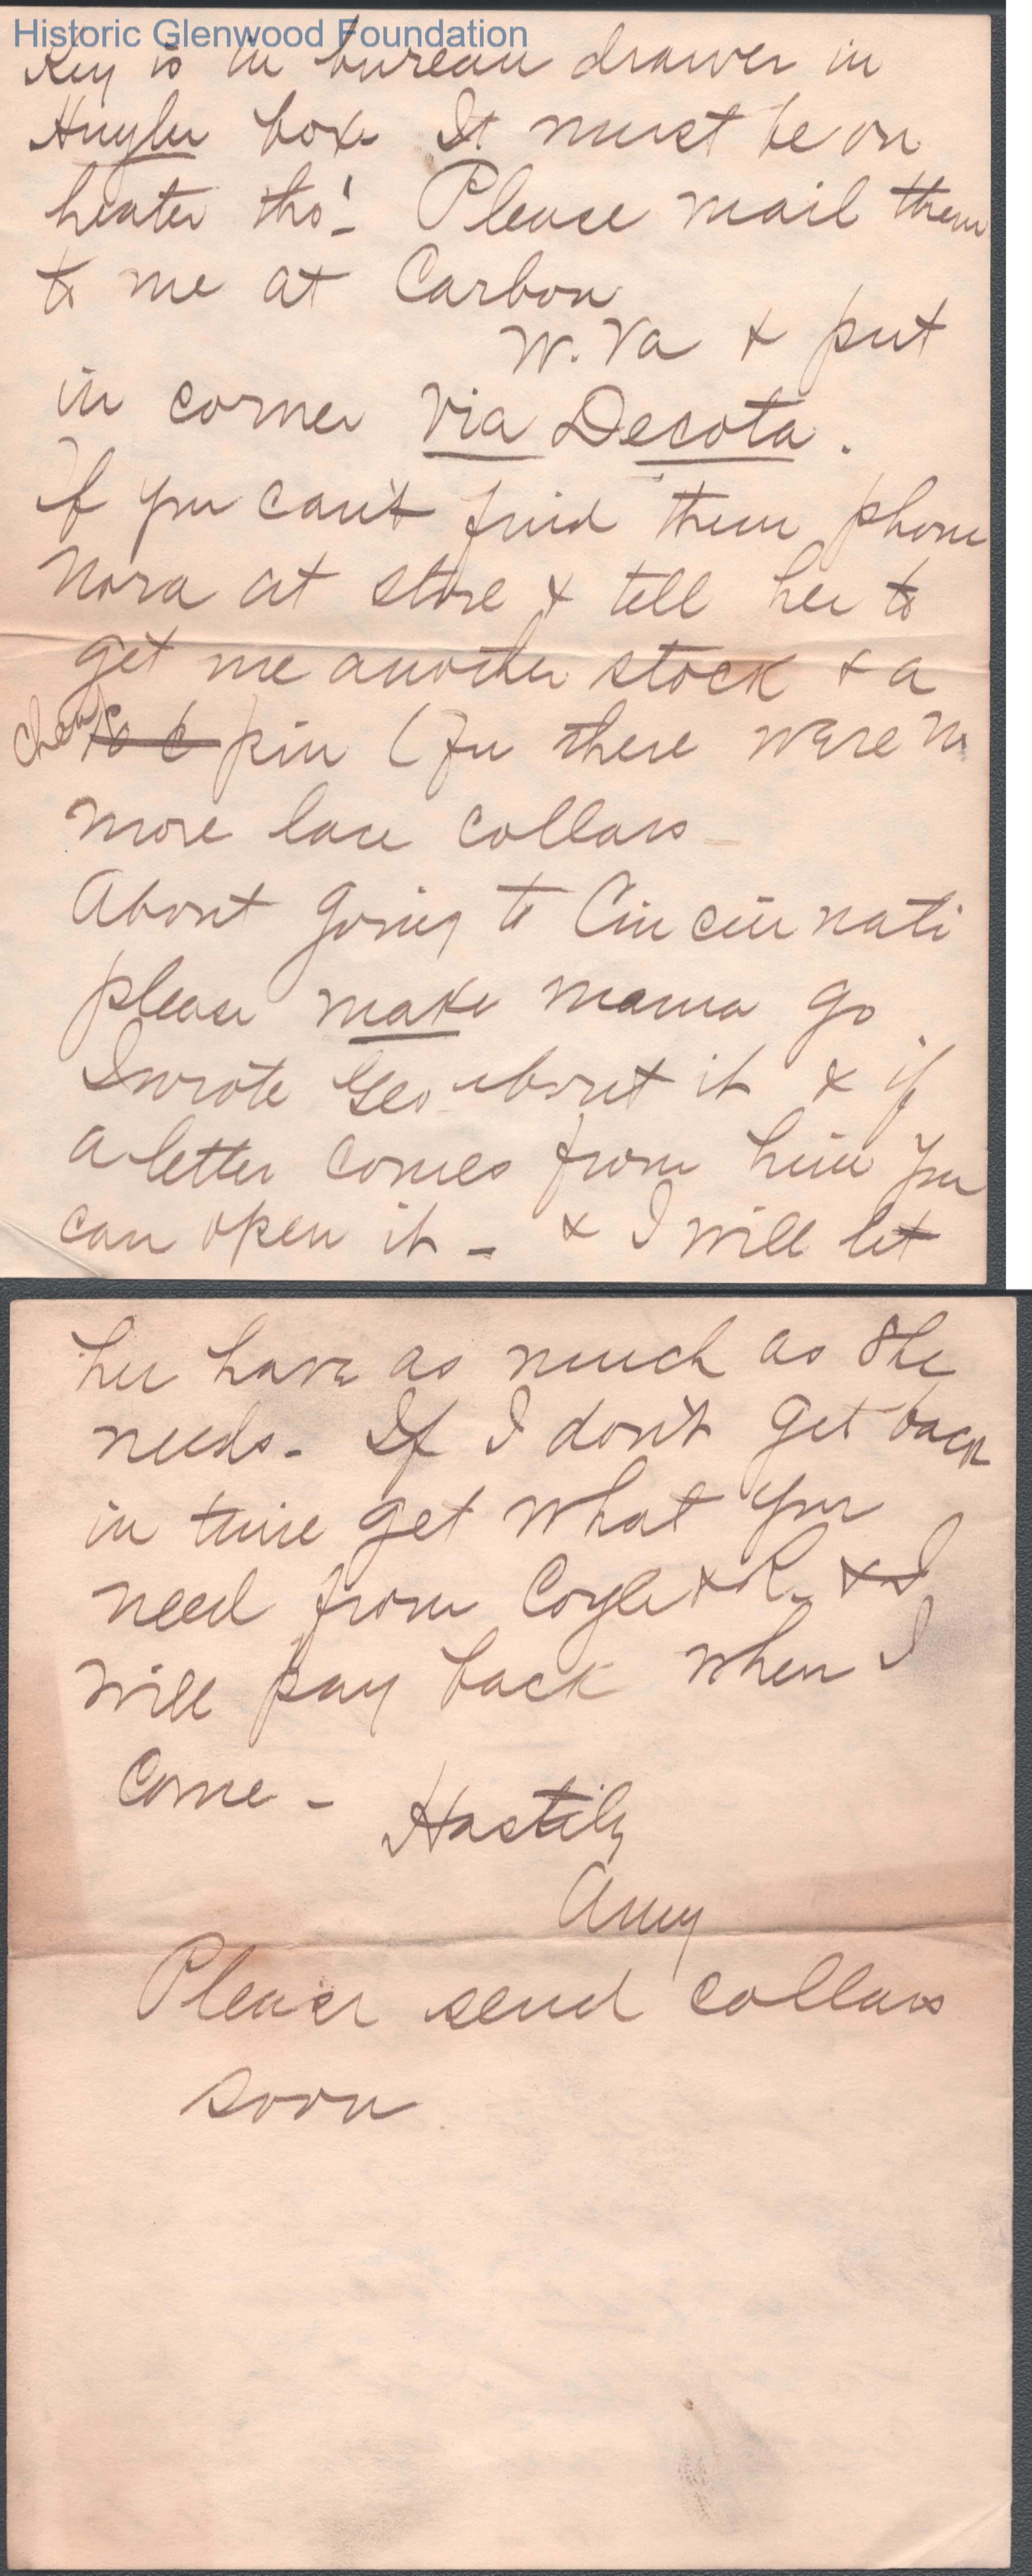 Historic Glenwood Foundation
Key is in bureau drawer in
Huyler box It must be on
heater tho'- Please mail them
to me at Carbon
W. Va & put
in corner Via Decota.
If you can't find them phone
Nora at store & tell her to
get me another stock & a
cheap pin (for there were no
more lace collars
About going to Cincinnati
please make mama go
I wrote Geo about it & if
a letter comes from him you
can open it - & I will let
her have as much as she
needs. If I don't get back
in time get what you
need from Coyle & R. & I
will pay back when I
Come - Hastily
Amy
Please send collars
soon